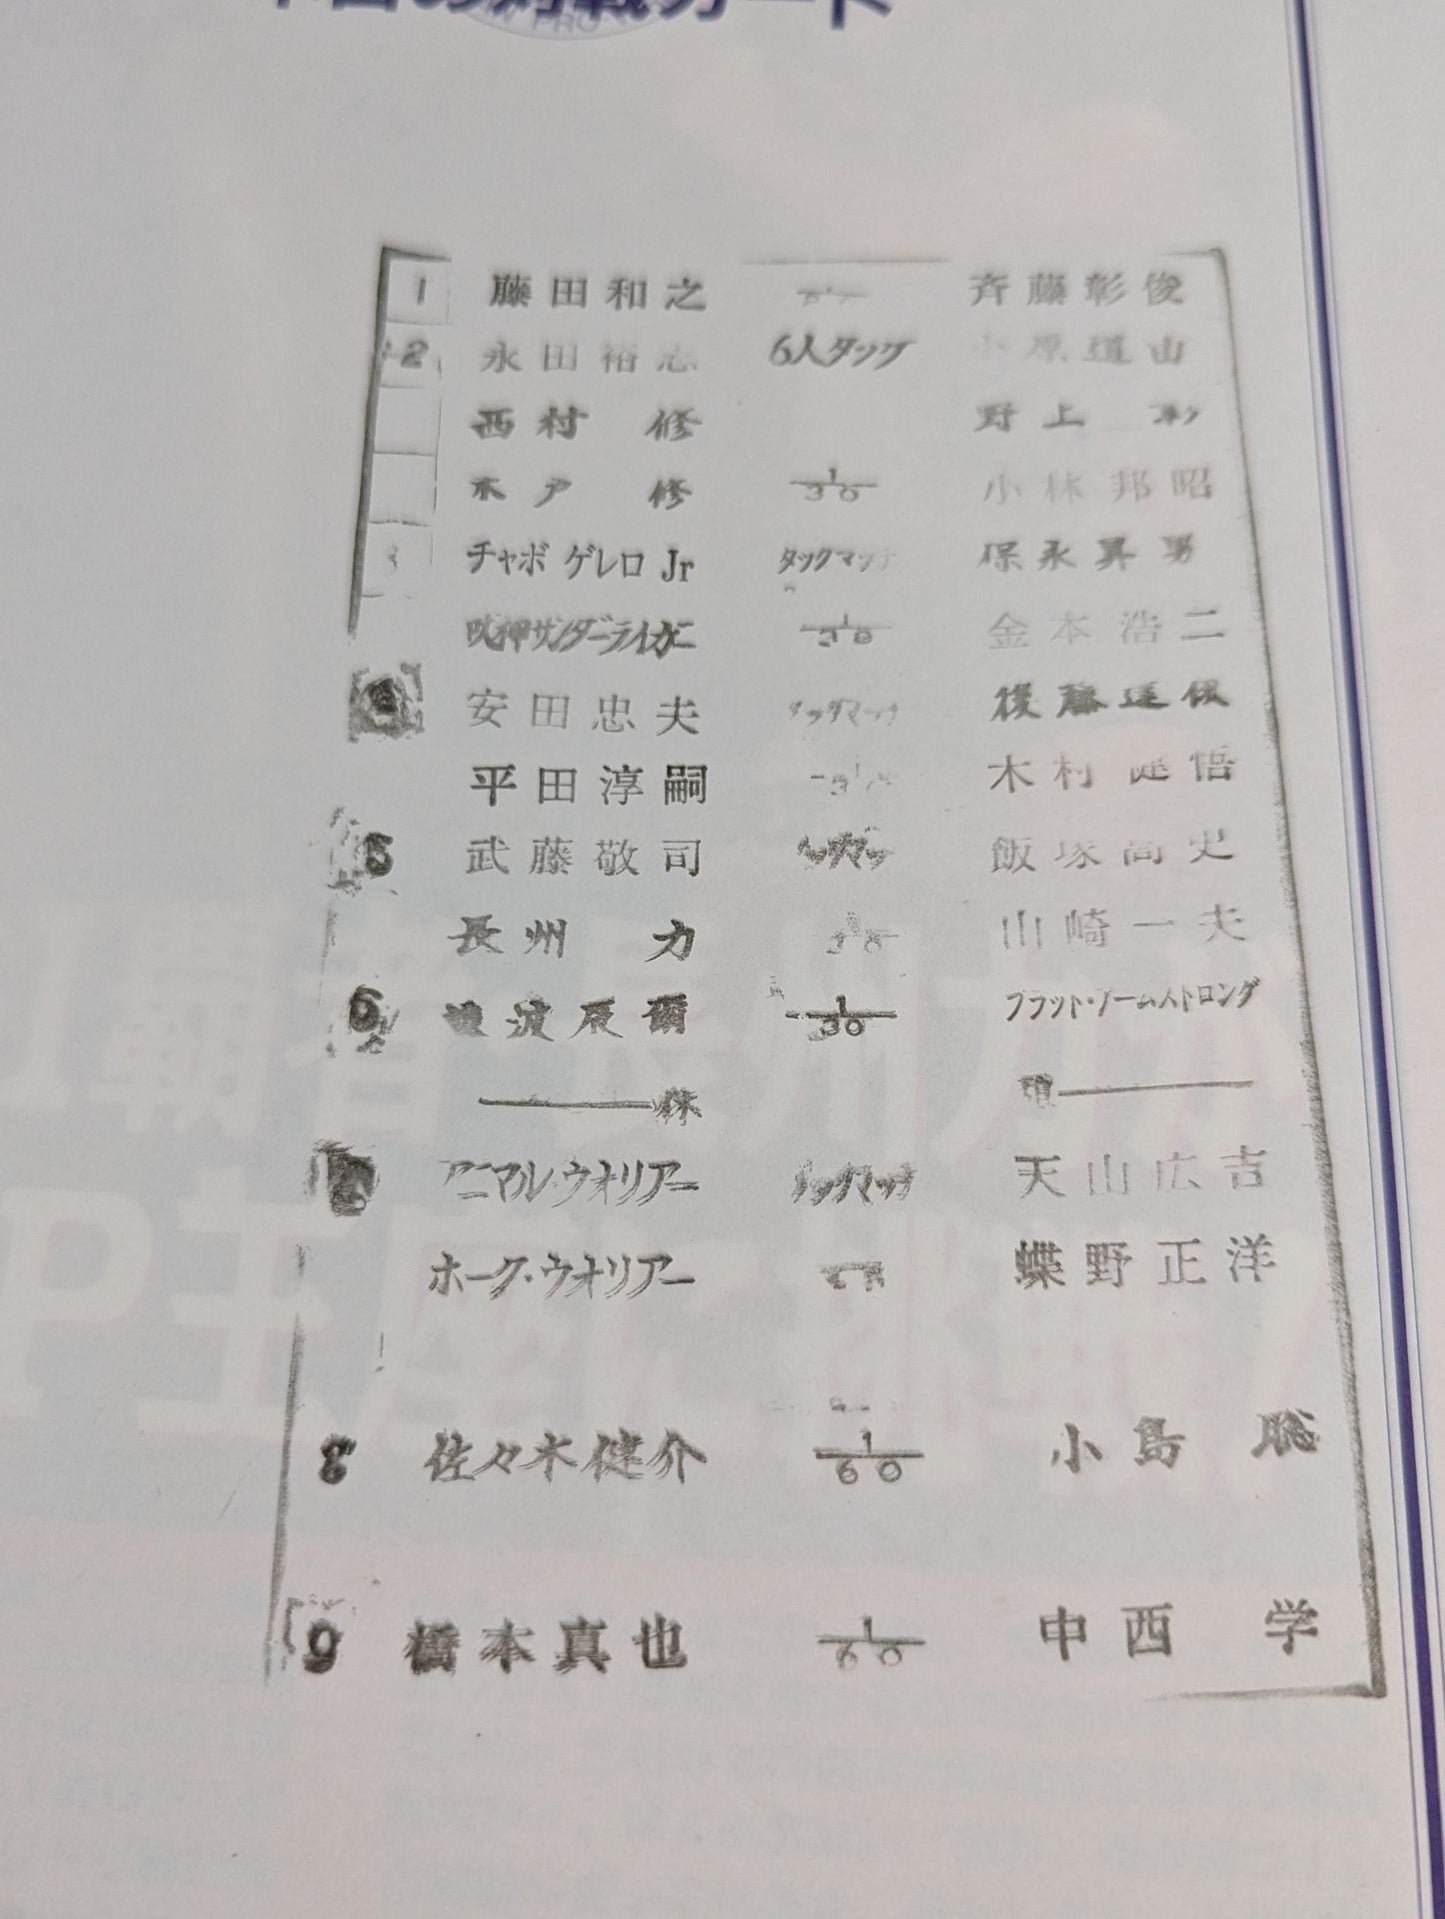 本日の対戦カード
PRO
1 藤田和之 斉藤彰俊
2 永田裕志 6人タッグ 小原道由
西村 修 野上 彰
木戸 修 1/30 小林邦昭
3 チャボ ゲレロ Jr タッグマッチ 保永昇男
獣神サンダーライガー 1/30 金本浩二
4 安田忠夫 タッグマッチ 後藤達俊
平田淳嗣 木村健悟
5 武藤敬司 タッグマッチ 飯塚高史
長州 力 1/30 山崎一夫
6 辰爾 1/30 ブラット・アームストロング
休 憩
7 アニマル・ウオリアー タッグマッチ 天山広吉
ホーク・ウオリアー 蝶野正洋
8 佐々木健介 1/60 小島 聡
9 橋本真也 1/60 中西 学